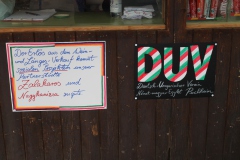 Der Erlös aus dem Wein-
und Langos-Verkauf kommt
sozialen Projekten unserer
Partnerstädte
Zalakaros
und
Nagykanizsa zugute
DUV
Deutsch-Ungarischer Verein